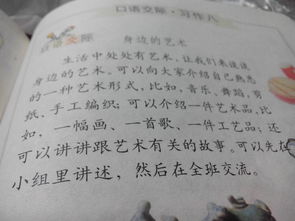 口语交际·习作八
口语交际
身边的艺术
生活中处处有艺术，让我们来说说
身边的艺术。可以向大家介绍自己熟悉
的一种艺术形式，比如，音乐、舞蹈、剪
纸、手工编织；可以介绍一件艺术品，比
如，一幅画、一首歌、一件工艺品；还
可以讲讲跟艺术有关的故事。可以先在
小组里讲述，然后在全班交流。